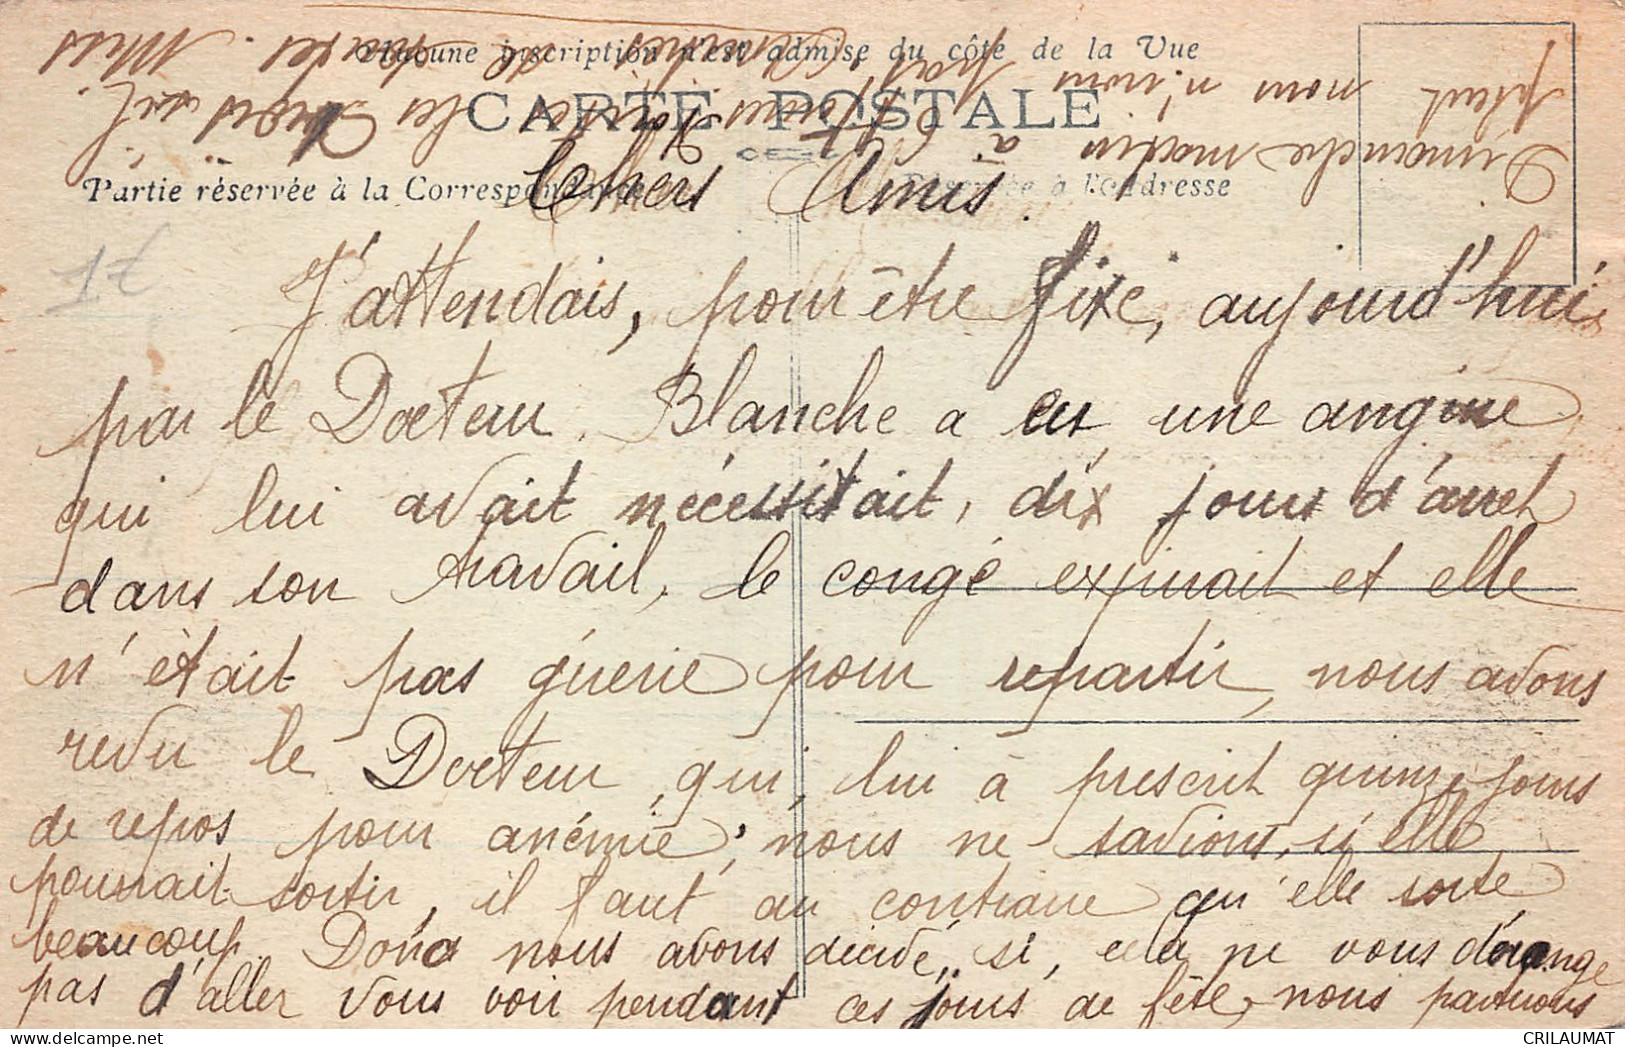 Aucune inscription n'est admise du côté de la Vue
CARTE POSTALE
Partie réservée à la Correspondance
Réservée à l'adresse
1€
Chers Amis.
J'attendais, pour être fixé, aujourd'hui
par le Docteur. Blanche a eu une angine
qui lui avait nécessitait, dix jours d'arret
dans son travail, le congé expirait et elle
n'était pas guérie pour repartir, nous avons
revu le Docteur, qui, lui à prescrit quinze jours
de repos pour anémie, nous ne savions, si elle
pourrait sortir, il faut au contraire qu'elle sorte
beaucoup. Donc nous avons décidé, si, cela ne vous dérange
pas d'aller vous voir pendant ces jours de fête, nous partirons
Dimanche matin à
nous n'irons pas
CRILAUMAT